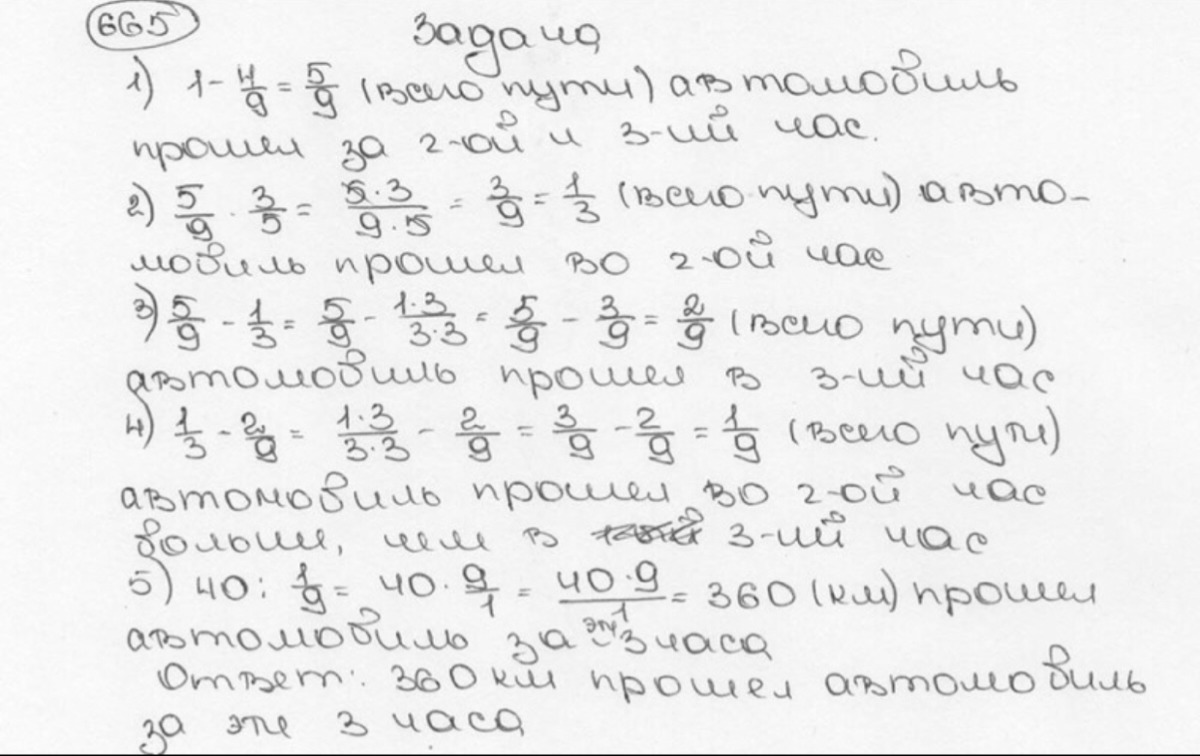 665 Задача
1) 1 - 4/9 = 5/9 (всего пути) автомобиль
прошел за 2-ой и 3-ий час.
2) 5/9 · 3/5 = 5·3/9·5 = 3/9 = 1/3 (всего пути) авто-
мобиль прошел во 2-ой час
3) 5/9 - 1/3 = 5/9 - 1·3/3·3 = 5/9 - 3/9 = 2/9 (всего пути)
автомобиль прошел в 3-ий час
4) 1/3 - 2/9 = 1·3/3·3 - 2/9 = 3/9 - 2/9 = 1/9 (всего пути)
автомобиль прошел во 2-ой час
больше, чем в 3-ий час
5) 40 : 1/9 = 40 · 9/1 = 40·9/1 = 360 (км) прошел
автомобиль за эти 3 часа
Ответ: 360 км прошел автомобиль
за эти 3 часа